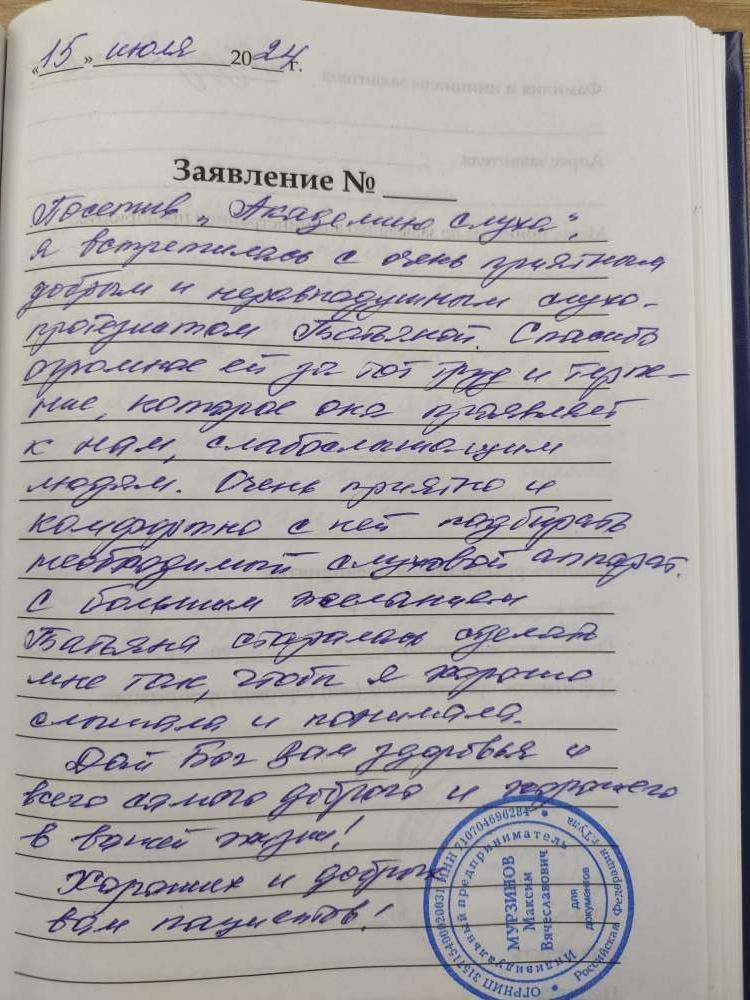 «15» июля 2024 г.
Заявление №
Посетив „Академию слуха",
я встретилась с очень приятным
добрым и неравнодушным слухо-
протезистом Татьяной. Спасибо
огромное ей за тот труд и терпе-
ние, которое она проявляет
к нам, слабослышащим
людям. Очень приятно и
комфортно с ней подбирать
необходимый слуховой аппарат.
С большим желанием
Татьяна старалась сделать
мне так, чтобы я хорошо
слышала и понимала.
Дай Бог вам здоровья и
всего самого доброго и хорошего
в вашей жизни!
Хороших и добрых
вам пациентов!
Индивидуальный предприниматель
МУРЗИНОВ
Максим
Вячеславович
для
документов
Российская Федерация г.Тула
ОГРНИП 315715400020031 ИНН 710704696284